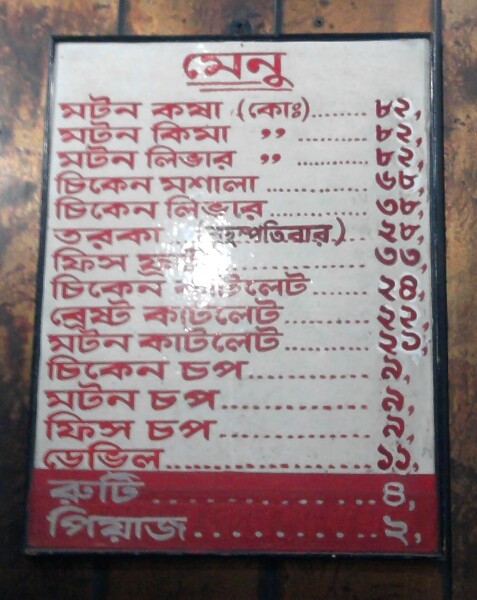 মেনু
মটন কষা (কোঃ)....... ৮২,
মটন কিমা ” ....... ৮২,
মটন লিভার ” ....... ৮২,
চিকেন মশালা ............... ৬৮,
চিকেন লিভার............... ৩৮,
তরকা (বৃহস্পতিবার) ২৮,
ফিস ............... ৩৩,
চিকেন কাটলেট........
ব্রেষ্ট কাটলেট...........
মটন কাটলেট...........
চিকেন চপ...............
মটন চপ.................
ফিস চপ.................
ডেভিল.....................
রুটি ............... ৪,
পিয়াজ............... ২,